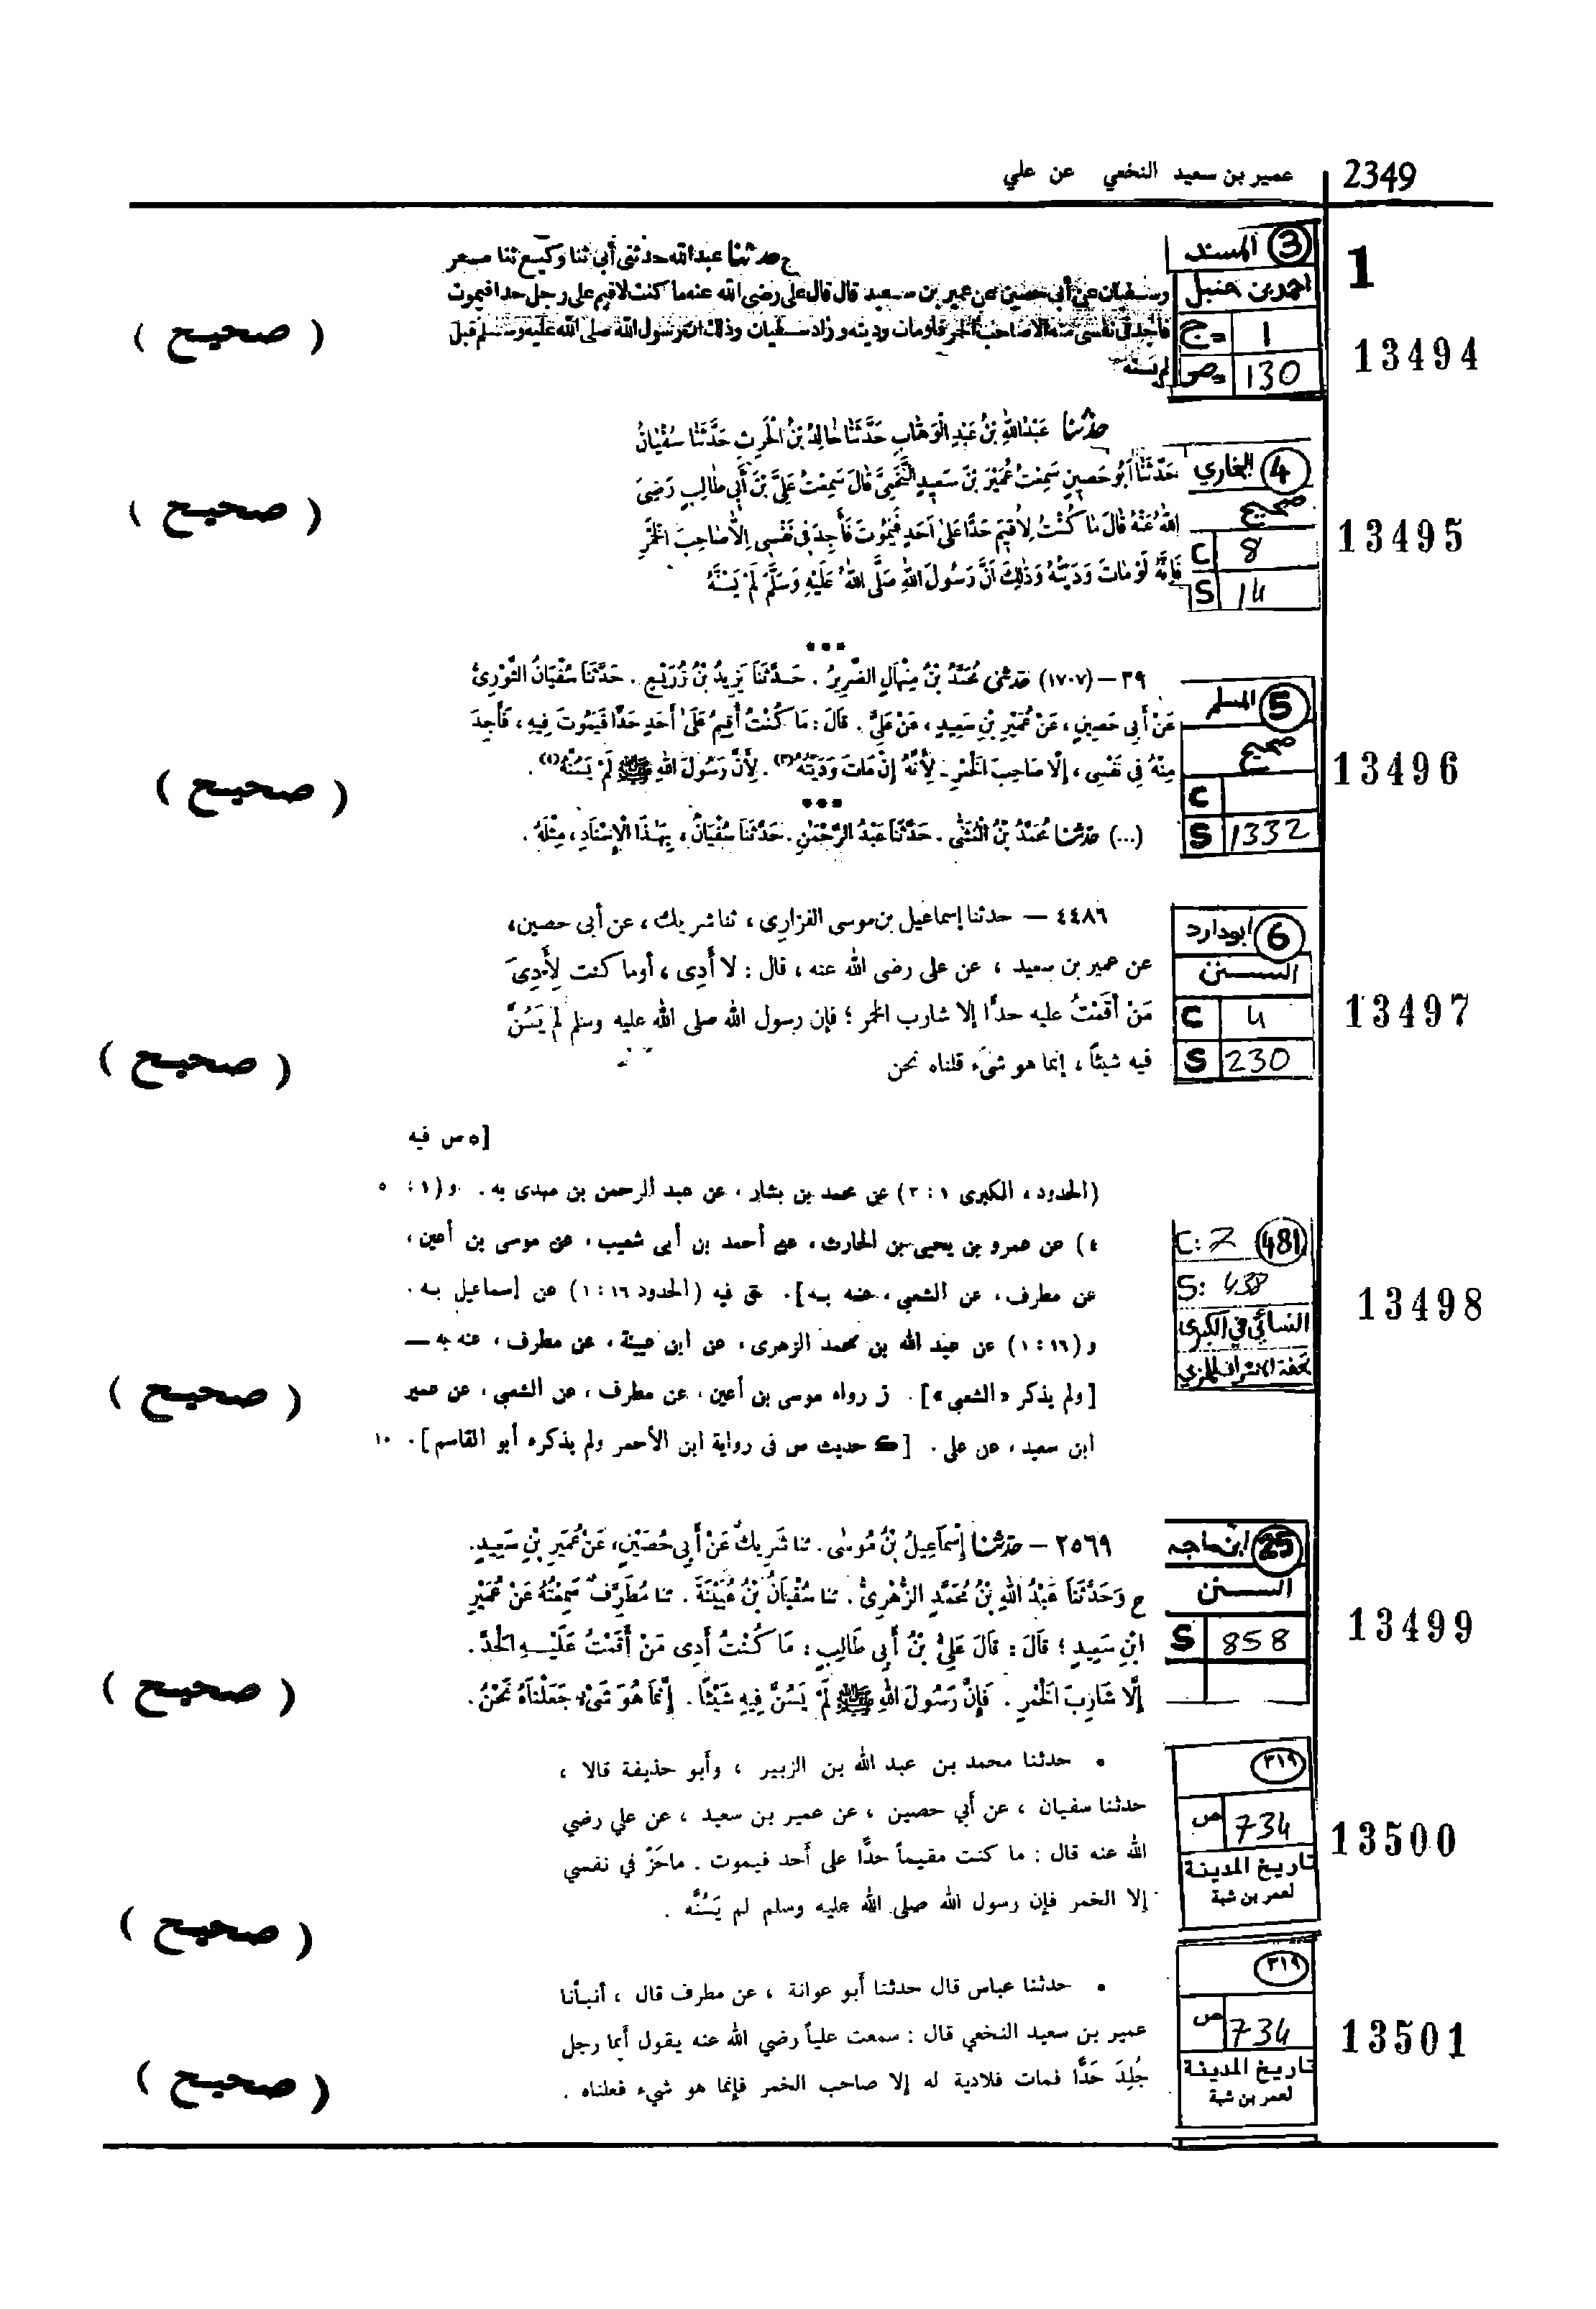 2349 عمير بن سعيد النخعي عن علي
1
③ المسند
احمد بن حنبل
ج= 1
ص= 130
13494
حدثنا عبد الله حدثنى أبى ثنا وكيع ثنا مسعر
وسفيان عن أبى حصين عن عمير بن سعيد قال قال على رضى الله عنه ما كنت لاقيم على رجل حدا فيموت
فأجد فى نفسى منه الا صاحب الخمر فلو مات وديته وزاد سفيان وذلك ان رسول الله صلى الله عليه وسلم قبل
لم يسنه
( صحيح )
④ البخاري
صحيح
C 8
S 14
13495
حدثنا عَبْدُ اللهِ بْنُ عَبْدِ الْوَهَّابِ حَدَّثَنَا خَالِدُ بْنُ الْحَرِثِ حَدَّثَنَا سُفْيَانُ
حَدَّثَنَا أَبُو حَصِينٍ سَمِعْتُ عُمَيْرَ بْنَ سَعِيدٍ النَّخَعِيَّ قَالَ سَمِعْتُ عَلِيَّ بْنَ أَبِي طَالِبٍ رَضِيَ
اللهُ عَنْهُ قَالَ مَا كُنْتُ لِأُقِيمَ حَدًّا عَلَى أَحَدٍ فَيَمُوتَ فَأَجِدَ فِي نَفْسِي إِلَّا صَاحِبَ الْخَمْرِ
فَإِنَّهُ لَوْ مَاتَ وَدَيْتُهُ وَذَلِكَ أَنَّ رَسُولَ اللهِ صَلَّى اللهُ عَلَيْهِ وَسَلَّمَ لَمْ يَسُنَّهُ
( صحيح )
***
⑤ المسلم
صحيح
C
S 1332
13496
٣٩ – (١٧٠٧) حَدَّثَنِي مُحَمَّدُ بْنُ مِنْهَالٍ الضَّرِيرُ . حَدَّثَنَا يَزِيدُ بْنُ زُرَيْعٍ . حَدَّثَنَا سُفْيَانُ الثَّوْرِيُّ
عَنْ أَبِي حَصِينٍ ، عَنْ عُمَيْرِ بْنِ سَعِيدٍ ، عَنْ عَلِيٍّ . قَالَ : مَا كُنْتُ أُقِيمُ عَلَى أَحَدٍ حَدًّا فَيَمُوتَ فِيهِ ، فَأَجِدَ
مِنْهُ فِي نَفْسِي ، إِلَّا صَاحِبَ الْخَمْرِ . لِأَنَّهُ إِنْ مَاتَ وَدَيْتُهُ(٣) . لِأَنَّ رَسُولَ اللهِ ﷺ لَمْ يَسُنَّهُ(٤) .
***
(...) حَدَّثَنَا مُحَمَّدُ بْنُ الْمُثَنَّى . حَدَّثَنَا عَبْدُ الرَّحْمَنِ . حَدَّثَنَا سُفْيَانُ ، بِهَذَا الْإِسْنَادِ ، مِثْلَهُ .
( صحيح )
⑥ ابو دارد
السنن
C 4
S 230
13497
٤٤٨٦ – حدثنا إسماعيل بن موسى الفزارى ، ثنا شريك ، عن أبى حصين ،
عن عمير بن سعيد ، عن على رضى الله عنه ، قال : لا أَدِى ، أو ما كنت لِأَدِىَ
مَنْ أَقَمْتُ عليه حدًّا إلا شارب الخمر ؛ فإن رسول الله صلى الله عليه وسلم لم يَسُنَّ
فيه شيئاً ، إنما هو شىء قلناه نحن
( صحيح )
481 C: 7
S: 438
النسائي في الكبرى
تحفة الاشراف للمزي
13498
[٥ س فيه
(الحدود ، الكبرى ١ : ٣) عن محمد بن بشار ، عن عبد الرحمن بن مهدى به . و (١ : ٥
٤) عن عمرو بن يحيى بن الحارث ، عن أحمد بن أبى شعيب ، عن موسى بن أعين ،
عن مطرف ، عن الشعبي ، عنه به] . ق فيه (الحدود ١٦ : ١) عن إسماعيل به .
و (١٦ : ١) عن عبد الله بن محمد الزهرى ، عن ابن عيينة ، عن مطرف ، عنه به —
[ولم يذكر «الشعبي»] . ز رواه موسى بن أعين ، عن مطرف ، عن الشعبي ، عن عمير
ابن سعيد ، عن على . [ك حديث س فى رواية ابن الأحمر ولم يذكره أبو القاسم] . ١٠
( صحيح )
25 ابن ماجه
السنن
S 858
13499
٢٥٦٩ – حَدَّثَنَا إِسْمَاعِيلُ بْنُ مُوسَى . ثنا شَرِيكٌ عَنْ أَبِي حُصَيْنٍ ، عَنْ عُمَيْرِ بْنِ سَعِيدٍ .
ح وَحَدَّثَنَا عَبْدُ اللهِ بْنُ مُحَمَّدٍ الزُّهْرِيُّ . ثنا سُفْيَانُ بْنُ عُيَيْنَةَ . ثنا مُطَرِّفٌ سَمِعْتُهُ عَنْ عُمَيْرِ
ابْنِ سَعِيدٍ ؛ قَالَ : قَالَ عَلِيُّ بْنُ أَبِي طَالِبٍ : مَا كُنْتُ أَدِي مَنْ أَقَمْتُ عَلَيْهِ الْحَدَّ .
إِلَّا شَارِبَ الْخَمْرِ . فَإِنَّ رَسُولَ اللهِ ﷺ لَمْ يَسُنَّ فِيهِ شَيْئًا . إِنَّمَا هُوَ شَيْءٌ جَعَلْنَاهُ نَحْنُ .
( صحيح )
٣١٩
ص 734
تاريخ المدينة
لعمر بن شبة
13500
• حدثنا محمد بن عبد الله بن الزبير ، وأبو حذيفة قالا ،
حدثنا سفيان ، عن أبي حصين ، عن عمير بن سعيد ، عن علي رضي
الله عنه قال : ما كنت مقيماً حدًّا على أحد فيموت . ماحَزّ في نفسي
إلا الخمر فإن رسول الله صلى الله عليه وسلم لم يَسُنَّه .
( صحيح )
٣١٩
ص 734
تاريخ المدينة
لعمر بن شبة
13501
• حدثنا عباس قال حدثنا أبو عوانة ، عن مطرف قال ، أنبأنا
عمير بن سعيد النخعي قال : سمعت علياً رضي الله عنه يقول أيما رجل
جُلِدَ حَدًّا فمات فلادية له إلا صاحب الخمر فإنما هو شيء فعلناه .
( صحيح )